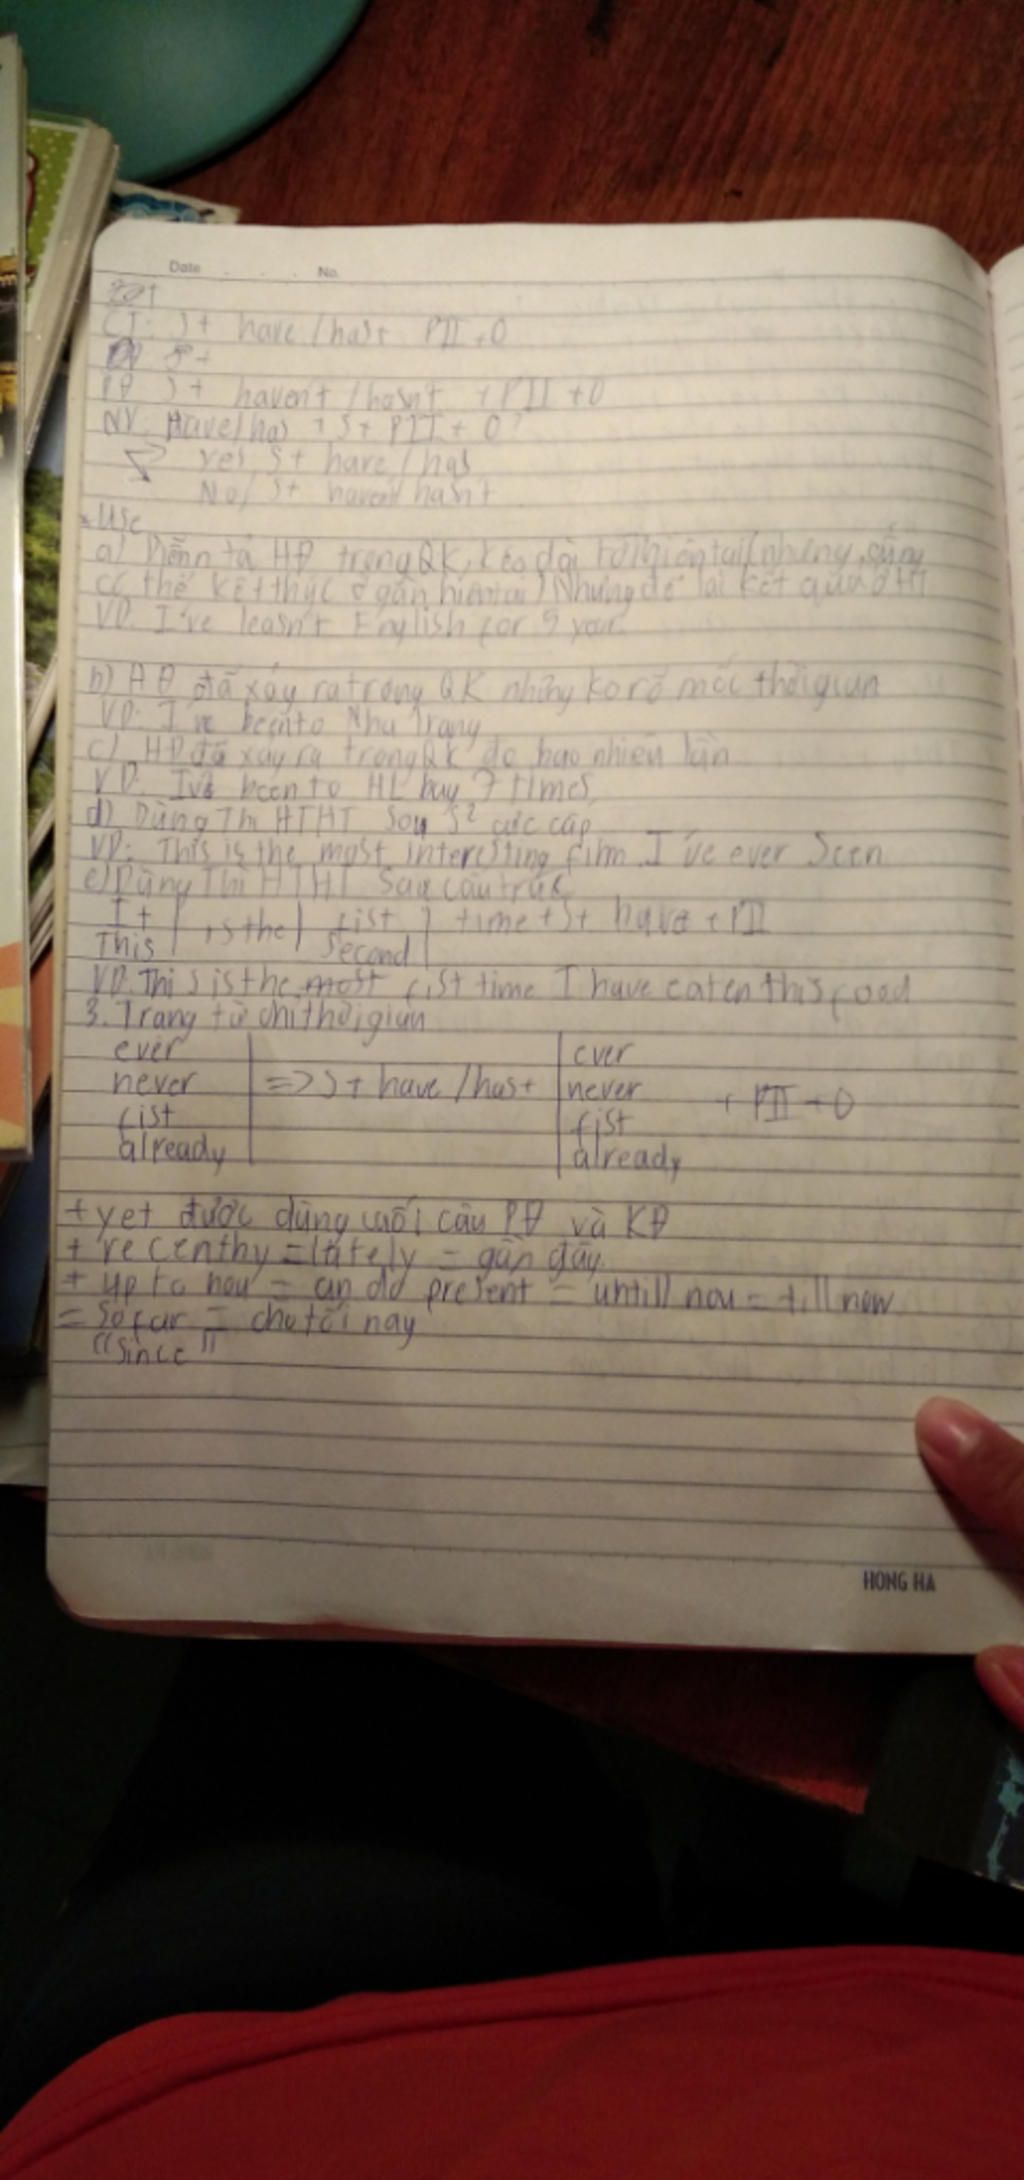 Date No.
CT: S+ have / has+ PII + O
S+
PĐ S+ haven't / hasn't + PII + O
NV: Have/has + S+ PII + O?
Yes, S+ have / has
No, S+ haven't/ hasn't
* Use
a) Diễn tả HĐ trong QK, kéo dài tới hiện tại (nhưng cũng
có thể kết thúc ở gần hiện tại) Nhưng để lại kết quả ở HT
VD: I've leasn't English for 5 year.
b) HĐ đã xảy ra trong QK nhưng ko rõ mốc thời gian
VD: I've been to Nha Trang
c) HĐ đã xảy ra trong QK đc bao nhiêu lần
VD: I've been to HL bay 7 times
d) Dùng Thì HTHT Sau S² cực cấp
VD: This is the most interesting film I've ever Seen
e) Dùng Thì HTHT Sau cấu trúc
It + is the fist time + S+ have + PII
This Second
VD. This is the most fist time I have eaten this food
3. Trạng từ chỉ thời gian
ever ever
never => S+ have / has+ never + PII + O
fist fist
already already
+ yet được dùng cuối câu PĐ và KĐ
+ recenthy = lately = gần đây
+ up to now = an do present = untill now = till now
= So far = cho tới nay
"Since"
HONG HA